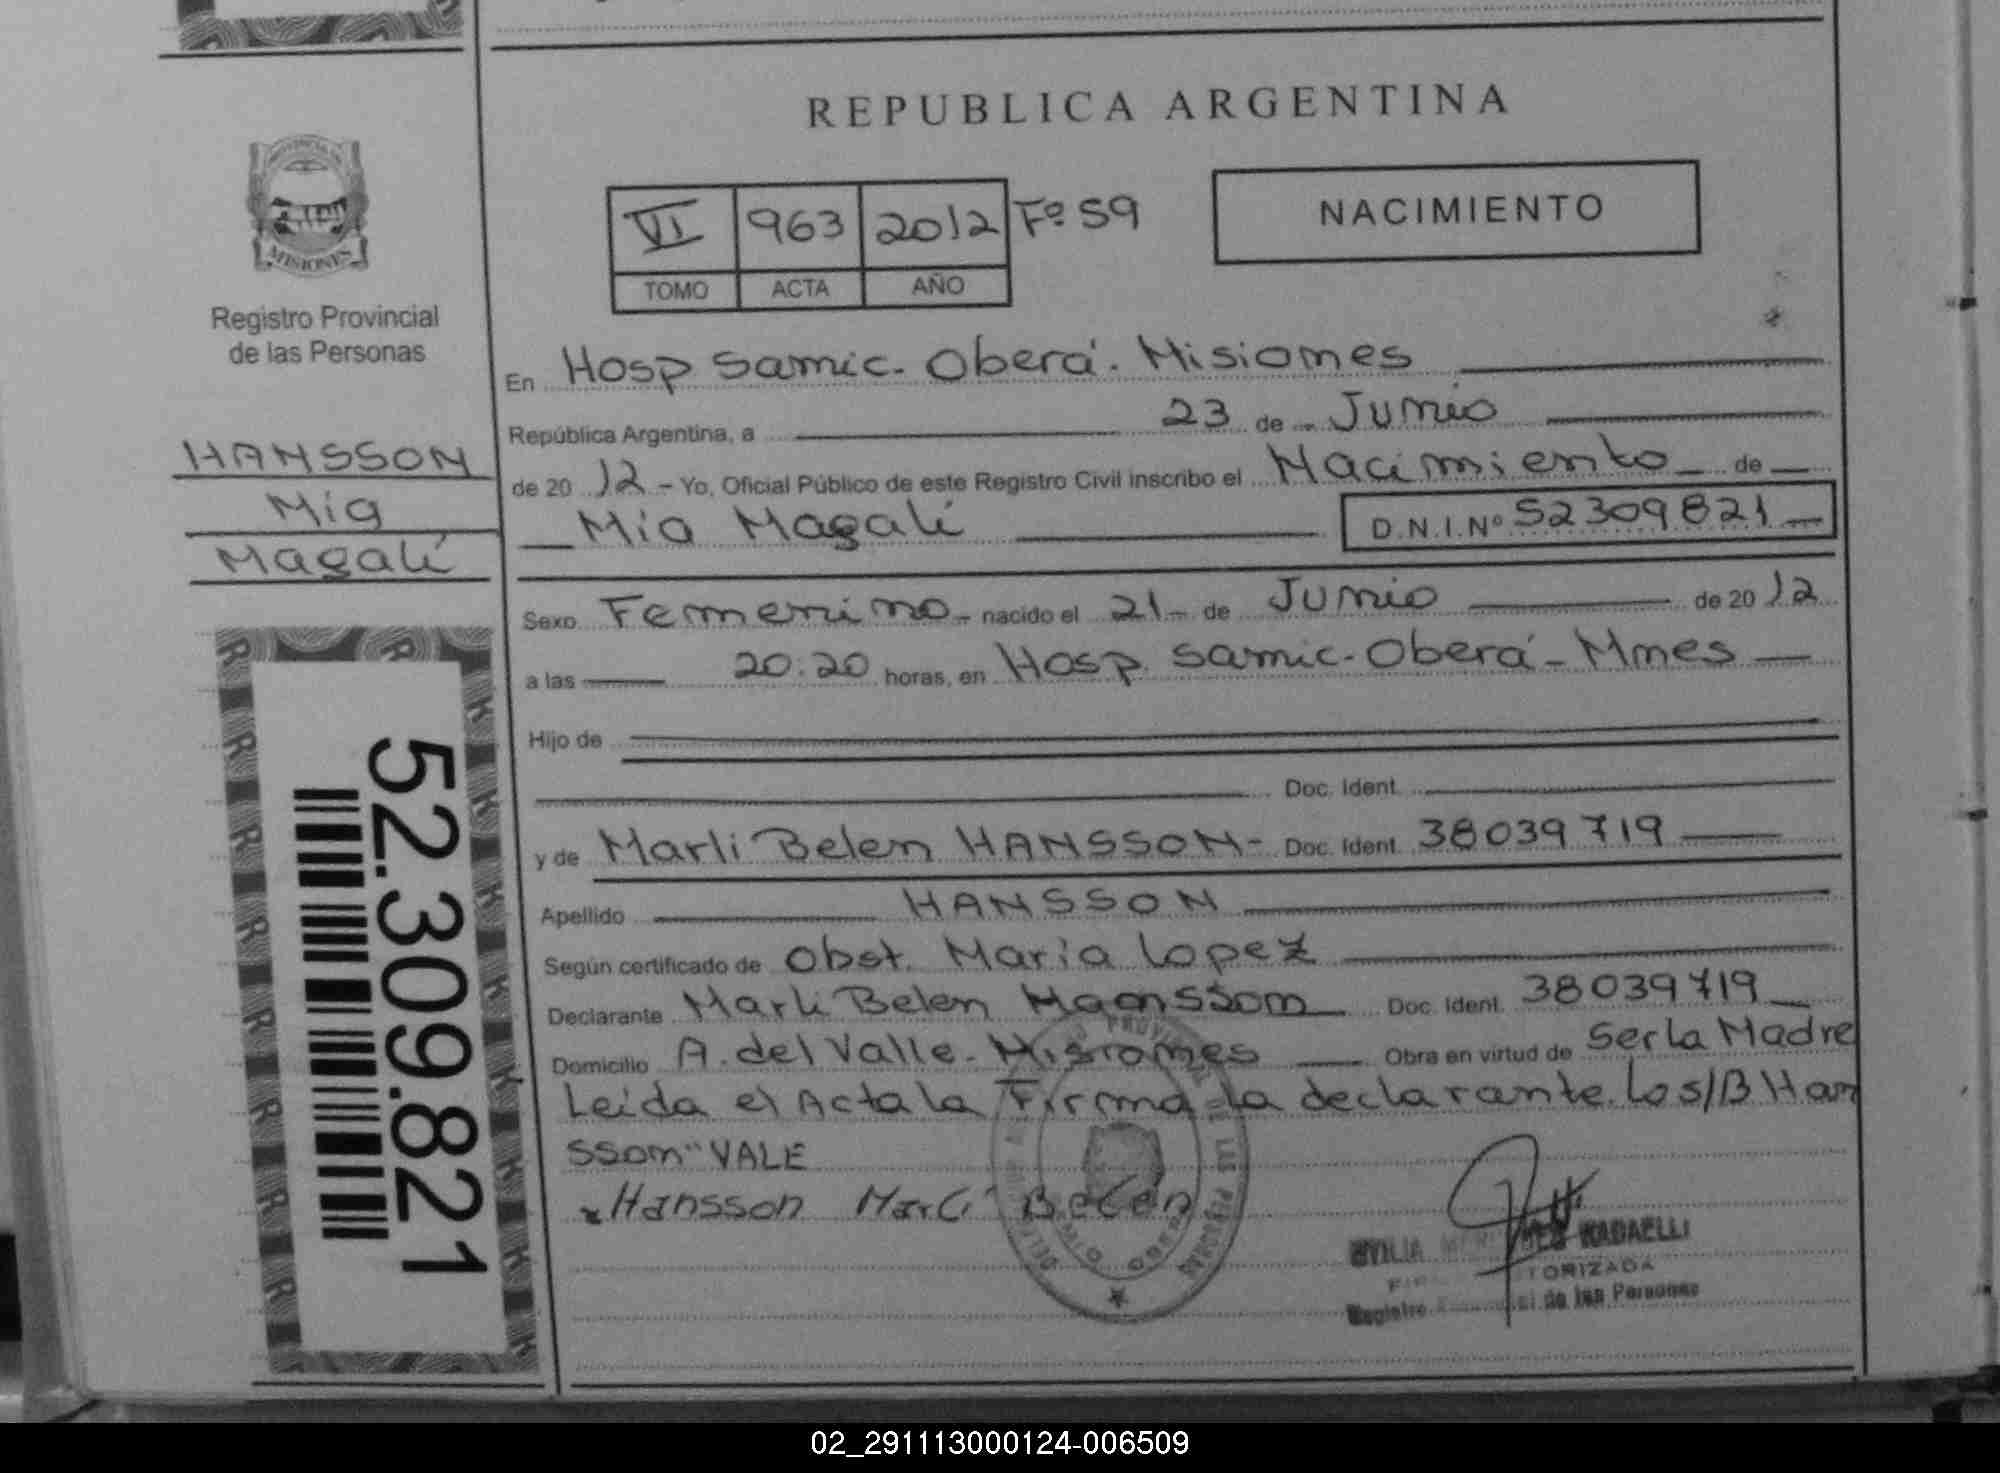 REPUBLICA ARGENTINA
PROVINCIA DE
MISIONES
Registro Provincial
de las Personas
HANSSON
Mia
Magalí
52.309.821
VI 963 2012 Fº 59
TOMO ACTA AÑO
NACIMIENTO
En Hosp Samic. Oberá. Misiones
República Argentina, a 23 de Junio
de 20 12 - Yo, Oficial Público de este Registro Civil inscribo el Nacimiento de
Mia Magalí D.N.I.Nº 52309821
Sexo Femenino - nacido el 21 - de Junio de 20 12
a las 20:20 horas, en Hosp. Samic. Oberá - Mnes
Hijo de
Doc. Ident.
y de Marli Belen HANSSON - Doc. Ident. 38039719
Apellido HANSSON
Según certificado de Obst. Maria Lopez
Declarante Marli Belen Haansson Doc. Ident. 38039719
Domicilio A. del Valle. Misiones Obra en virtud de Ser la Madre
Leída el Acta la Firma la declarante. Lo s/B Han
sson" VALE
x Hansson Marli Belen
RADAELLI
TORIZADA
Registro de las Personas
02_291113000124-006509